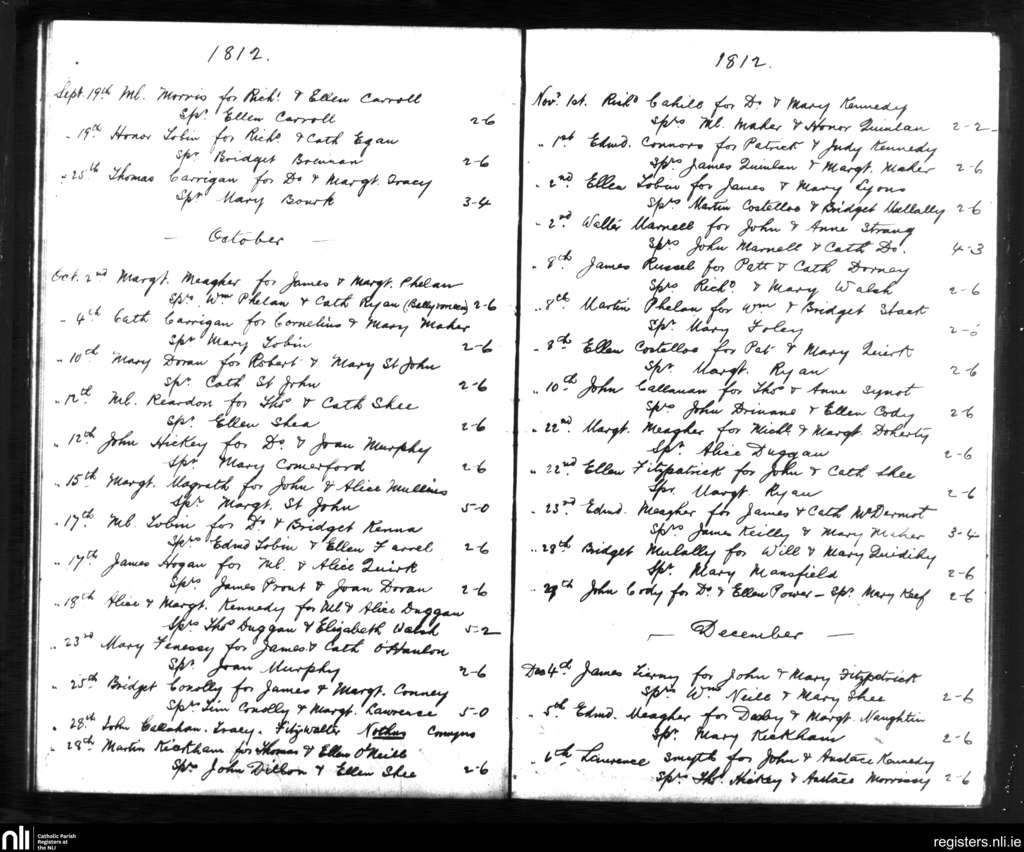 1812.
Sept 19th Ml. Morris for Richd & Ellen Carroll
Spr. Ellen Carroll 2-6
" 19th Honor Tobin for Richd & Cath Egan
Spr Bridget Brennan 2-6
" 25th Thomas Carrigan for Do & Margt. Tracy
Spr Mary Bourk 3-4
— October —
Oct. 2nd Margt. Meagher for James & Margt. Phelan
Sprs Wm Phelan & Cath Ryan 2-6
" 4th Cath Carrigan for Cornelius & Mary Maher
Spr Mary Tobin 2-6
" 10th Mary Doran for Robert & Mary St John
Spr. Cath St John 2-6
" 12th Ml. Reardon for Thos & Cath Shee
Spr. Ellen Shea 2-6
" 12th John Hickey for Do & Joan Murphy
Spr. Mary Comerford 2-6
" 15th Margt. Magrath for John & Alice Mullins
Spr Margt. St John 5-0
" 17th Ml. Tobin for Do & Bridget Kenna
Sprs Edmd Tobin & Ellen Farrel 2-6
" 17th James Hogan for Ml. & Alice Quirk
Sprs James Prout & Joan Doran 2-6
" 18th Alice & Margt. Kennedy for Ml & Alice Duggan
Sprs Thos Duggan & Elizabeth Walsh 5-2
" 23rd Mary Fenessy for James & Cath O'Hanlon
Spr. Joan Murphy 2-6
" 25th Bridget Conolly for James & Margt. Conney
Spr Tim Conolly & Margt. Lawrence 5-0
" 28th John Callahan. Tracy. Fitzwalter Nothus
" 28th Martin Kickham for Thomas & Ellen O'Neill
Sprs John Dillon & Ellen Shee 2-6
1812.
Novr 1st. Richd Cahill for Do & Mary Kennedy
Sprs Ml. Maher & Honor Quinlan 2-2
" 1st Edmd. Connors for Patrick & Judy Kennedy
Sprs James Quinlan & Margt. Maher 2-6
" 2nd Ellen Tobin for James & Mary Lyons
Sprs Martin Costelloe & Bridget Hallally 2-6
" 2nd Walter Marnell for John & Anne Strang
Sprs John Marnell & Cath Do. 4-3
" 8th James Russel for Patt & Cath Dorney
Sprs Richd & Mary Walsh 2-6
" 8th Martin Phelan for Wm & Bridget Stack
Spr. Mary Foley
" 8th Ellen Costelloe for Pat & Mary Quirk
Spr. Margt. Ryan 2-6
" 10th John Callanan for Thos & Anne Synot
Sprs John Drinane & Ellen Cody 2-6
" 22nd Margt. Meagher for Michl & Margt. Doherty
Spr. Alice Duggan 2-6
" 22nd Ellen Fitzpatrick for John & Cath Shee
Spr. Margt. Ryan 2-6
" 23rd Edmd. Meagher for James & Cath McDermot
Sprs James Keilly & Mary Maher 3-4
" 28th Bridget Mulally for Will & Mary
Spr Mary Mansfield 2-6
" 29th John Cody for Do & Ellen Power — Spr Mary Keef 2-6
— December —
Dec 4th James Tierny for John & Mary Fitzpatrick
Sprs Wm Neill & Mary Shee 2-6
" 5th Edmd. Meagher for Darby & Margt Naughtin
Spr. Mary Kickham 2-6
" 6th Lawrence Smyth for John & Anstace Kennedy
Sprs Thos. Hickey & Anstace Morrissy 2-6
nli
Catholic Parish
Registers at
the NLI
registers.nli.ie